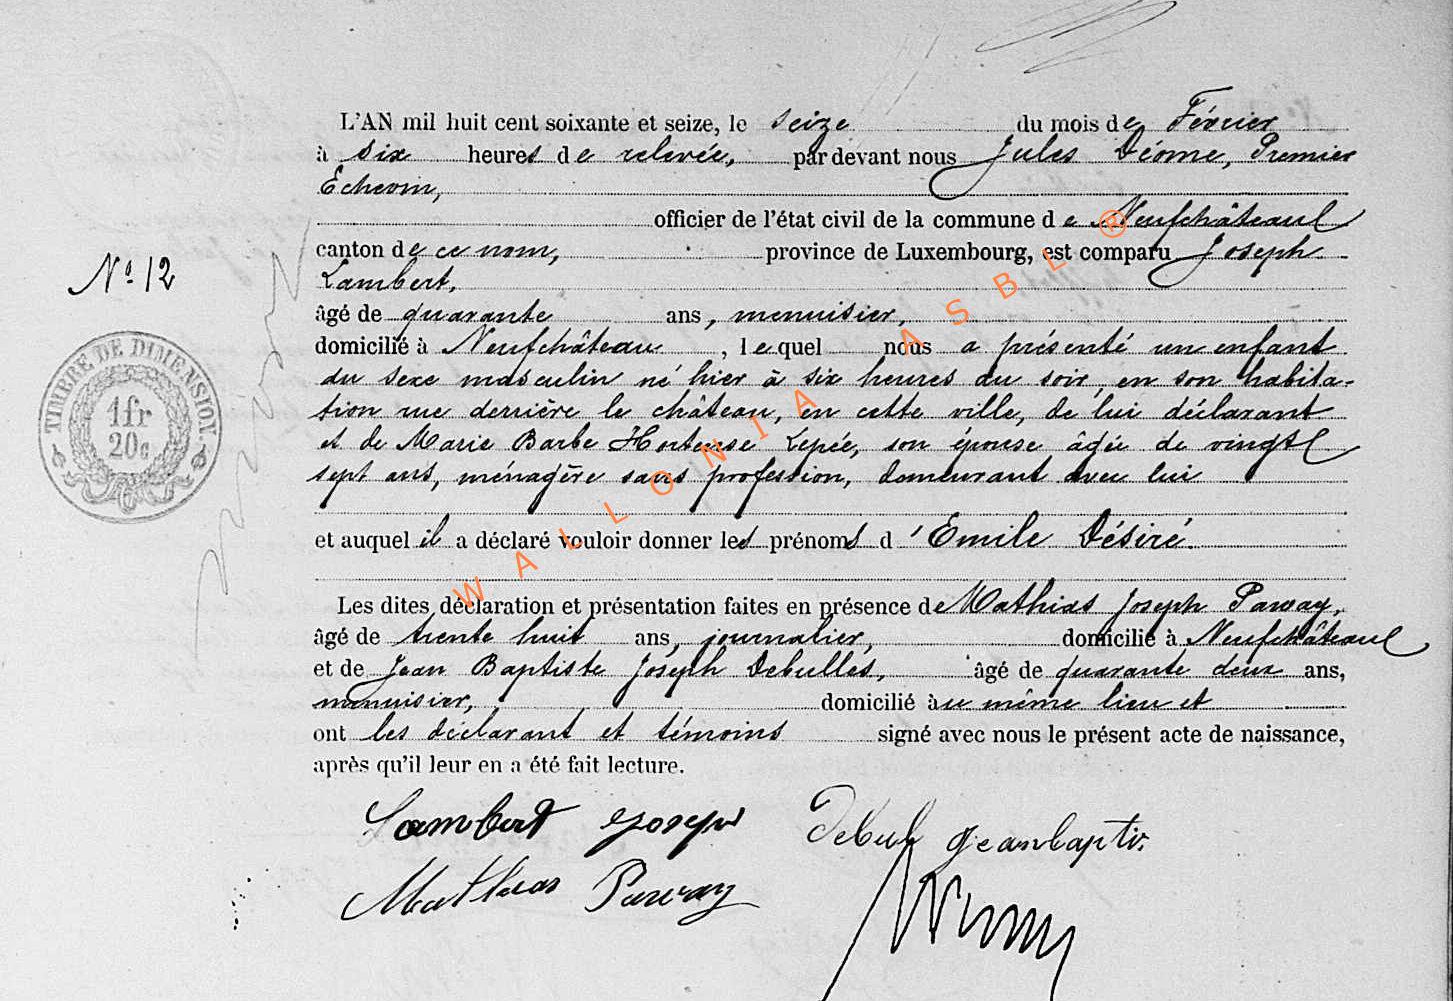 L'AN mil huit cent soixante et seize, le seize du mois de Février
à six heures de relevée, par devant nous Jules Déome, Premier
Echevin,
officier de l'état civil de la commune de Neufchâteau
canton de ce nom, province de Luxembourg, est comparu Joseph
Lambert,
N° 12
âgé de quarante ans, menuisier,
domicilié à Neufchâteau, lequel nous a présenté un enfant
du sexe masculin né hier à six heures du soir, en son habita-
tion rue derrière le château, en cette ville, de lui déclarant
et de Marie Barbe Hortense Lepée, son épouse âgée de vingt
sept ans, ménagère sans profession, demeurant avec lui
et auquel il a déclaré vouloir donner les prénoms d'Emile Désiré.
Les dites déclaration et présentation faites en présence de Mathias Joseph Parvay,
âgé de trente huit ans, journalier, domicilié à Neufchâteau
et de Jean Baptiste Joseph Debulles, âgé de quarante deux ans,
menuisier, domicilié au même lieu et
ont les déclarant et témoins signé avec nous le présent acte de naissance,
après qu'il leur en a été fait lecture.
TIMBRE DE DIMENSION.
1fr
20c
WALLONIA ASBL ®
Lambert Joseph
Mathias Parvay